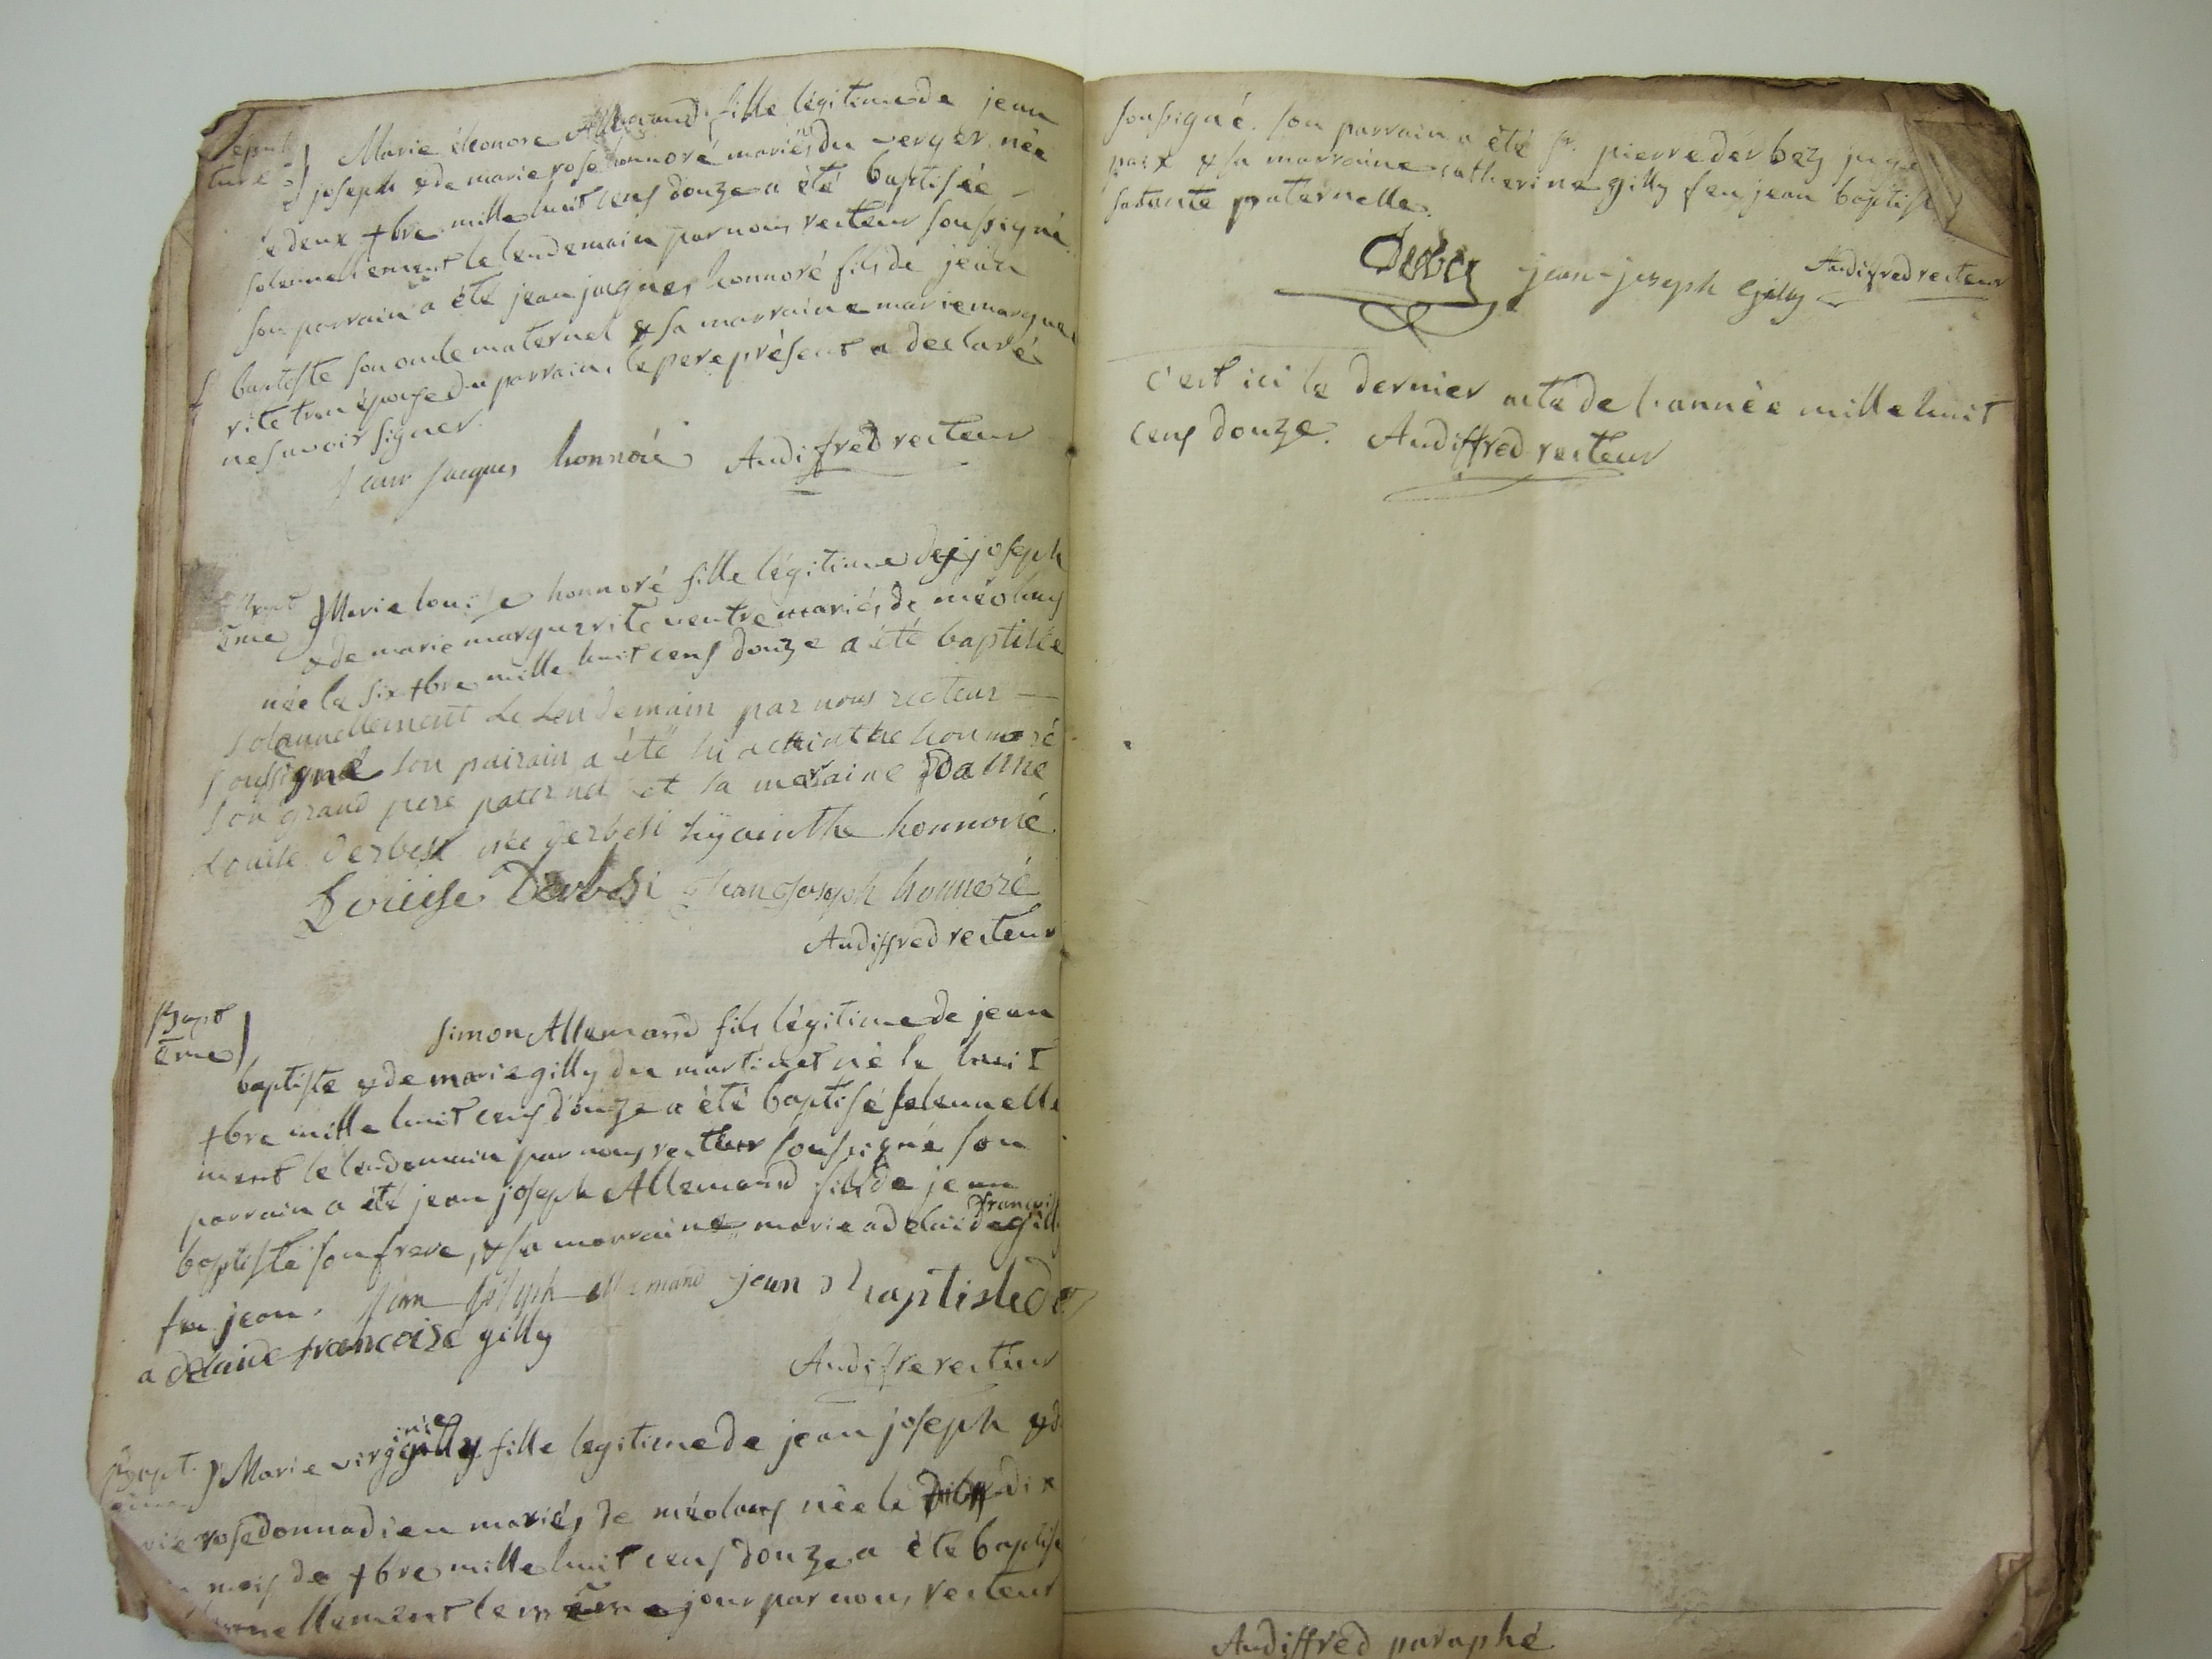 Marie éleonore Allemand fille légitime de jean
joseph & de marie rose honnoré mariés du verger née
le deux xbre mille huit cens douze a été baptisée
solennellement le lendemain par nous recteur soussigné
son parrain a été jean jacques honnoré fils de jean
baptiste son oncle maternel & sa marraine marie margue
rite tron épouse du parrain. le pere présent a déclaré
ne savoir signer.
Jean Jacques honnoré Audiffred recteur
Bapt
ême } Marie louise honnoré fille légitime de j joseph
& de marie marguerite ventre mariés de méolans
née le six xbre mille huit cens douze a été baptisée
solannellement le lendemain par nous recteur
soussigné son pairain a été hiackinthe honnoré
son grand pere paternel et sa meraine dame
Louise derbesi née derbesi hÿacinthe honnorié
Louise Derbesi Jean Joseph honnoré
Audiffred recteur
Bapt
ême } simon Allemand fils légitime de jean
baptiste & de marie gilly du martinet né le huit
xbre mille huit cens douze a été baptisé solennelle
ment le lendemain par nous recteur soussigné son
parrain a été jean joseph Allemand fils de jean
baptiste son frere, & sa marraine marie adelaide françoise gilly
feu jean. Jean Joseph allemand jean baptiste
adelaide françoise gilly
Audiffre recteur
Bapt
ême } Marie virginie gilly fille legitime de jean joseph & de
marie rose donnadieu mariés de méolans née le dix
mois de xbre mille huit cens douze a été baptisé
solennellement le même jour par nous recteur
soussigné. son parrain a été sr. pierre dérbez juge
paix & sa marraine catherine gilly feu jean baptiste
sa tante paternelle.
Derbez jean joseph Gilly Audiffred recteur
c'est ici le dernier acte de l'année mille huit
cens douze. Audiffred recteur
Audiffred paraphé